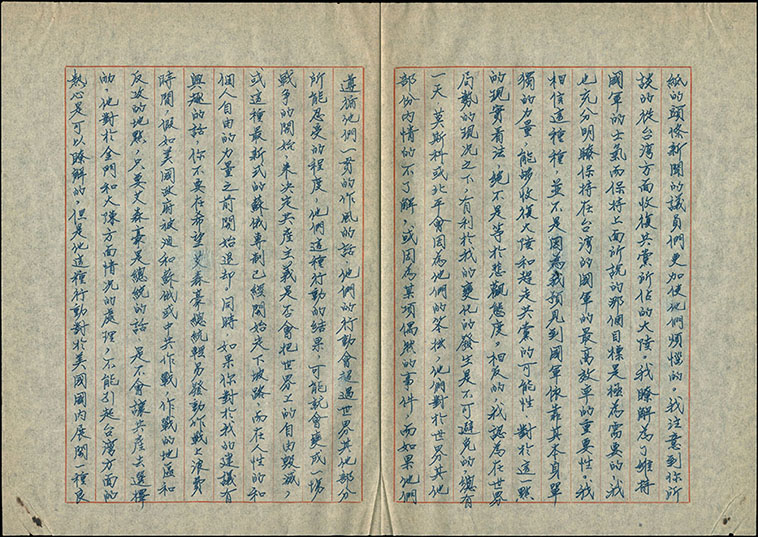 紙的頭條新聞的議員們更加使他們煩惱的。我注意到你所
談的從台湾方面收復共黨所佔的大陸。我瞭解為了維持
國軍的士氣而保持上面所說的那個目標是極為需要的，我
也充分明瞭保持在台湾的國軍的最高效率的重要性。我
相信這種種，並不是因為我預見到國軍依靠其本身單
獨的力量，能够收復大陸和趕走共黨的可能性 對於這一點
的現實看法 絕不是等於悲觀態度。相反的，我認為在世界
局勢的現況之下，有利於我的變化的發生是不可避免的，總有
一天 莫斯科或北平會因為他們的笨拙，他們對於世界其他
部份內情的不了解，或因為某項偶然的事件，而如果他們
遵循他們一貫的作風的話 他們的行動會超過世界其他部分
所能忍受的程度，他們這種行動的結果，可能就會變成一場
戰爭的開始，來決定共產主義是否會把世界上的自由毀滅，
或這種最新式的蘇俄專制已經開始走下坡路 而在人性的和
個人自由的力量之前開始退却，同時 如果你對於我的建議有
興趣的話，你不要在希望艾森豪總統輕易發動作戰上浪費
時間，假如美國政府被迫和蘇俄或中共作戰，作戰的地區和
反攻的地點，只要艾森豪是總統的話 是不會讓共產去選擇
的，他對於金門和大陳方面情况的處理，不能引起台湾方面的
熱心是可以瞭解的，但是他這種行動對於美國國內展開一種良